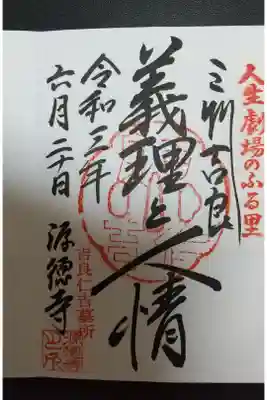 人生劇場のふる里
三州吉良
義理と人情
令和三年
六月二十日 源徳寺
吉良仁吉墓所